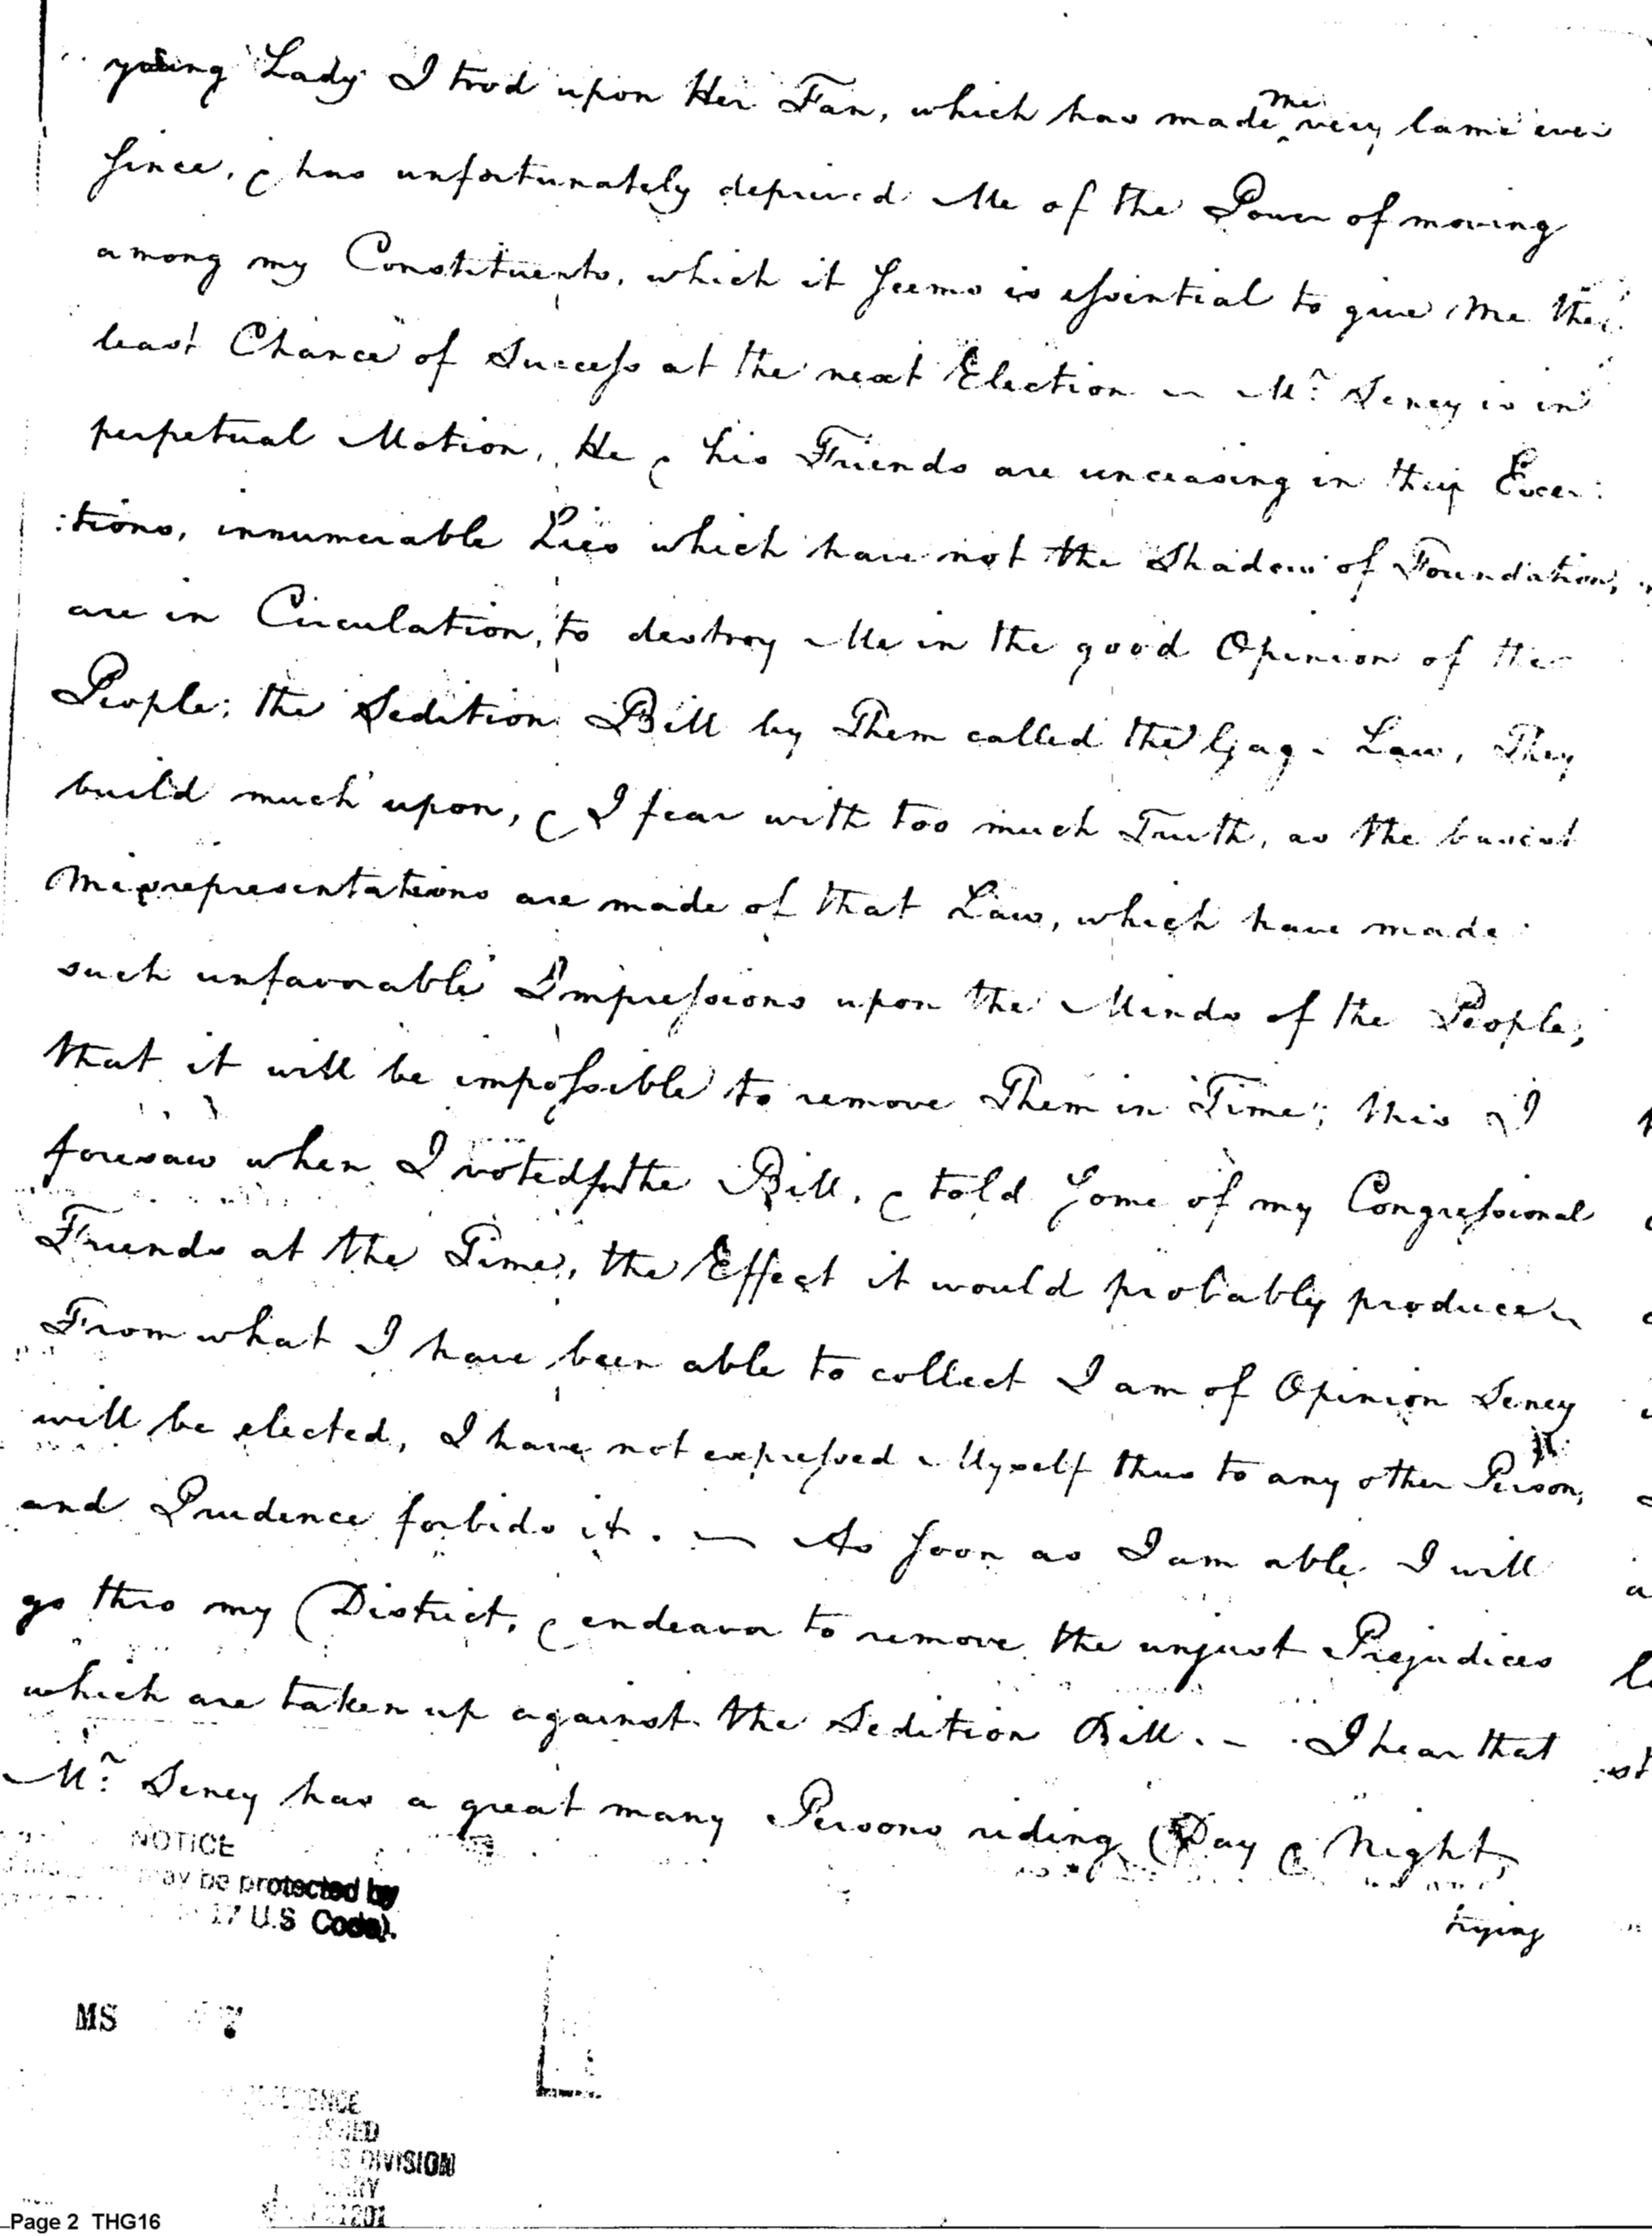 young Lady I trod upon Her Fan, which has made me very lame ever
since, & has unfortunately deprived Me of the Power of moving
among my Constituents, which it seems is essential to give Me the
least Chance of Success at the next Election — Mr. Seney is in
perpetual Motion, He & his Friends are unceasing in their Exer:
:tions, innumerable Lies which have not the Shadow of Foundation,
are in Circulation, to destroy Me in the good Opinion of the
People; the Sedition Bill by Them called the Gag - Law, They
build much upon, & I fear with too much Truth, as the basest
Misrepresentations are made of that Law, which have made
such unfavorable Impressions upon the Minds of the People,
that it will be impossible to remove Them in Time; this I
foresaw when I voted for the Bill, & told some of my Congressional
Friends at the Time, the Effect it would probably produce —
From what I have been able to collect I am of Opinion Seney
will be elected, I have not expressed Myself thus to any other Person,
and Prudence forbids it. — As soon as I am able I will
go thro my District, & endeavor to remove the unjust Prejudices
which are taken up against the Sedition Bill. — I hear that
Mr. Seney has a great many Persons riding Day & Night,
trying
NOTICE
may be protected by
17 U.S Code).
MS
DIVISION
Page 2 THG16